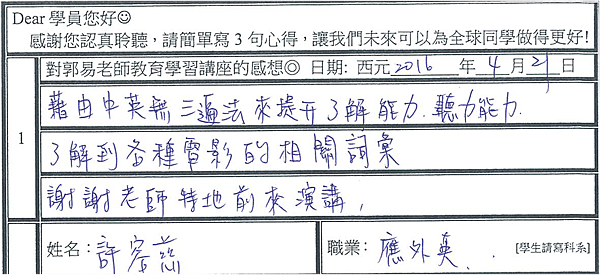 Dear 學員您好☺
感謝您認真聆聽，請簡單寫 3 句心得，讓我們未來可以為全球同學做得更好!
對郭易老師教育學習講座的感想◎ 日期: 西元2016年4月21日
1
藉由中英無三遍法來提升了解能力.聽力能力.
了解到各種電影的相關詞彙
謝謝老師特地前來演講,
姓名：許容慈 職業：應外英.. [學生請寫科系]